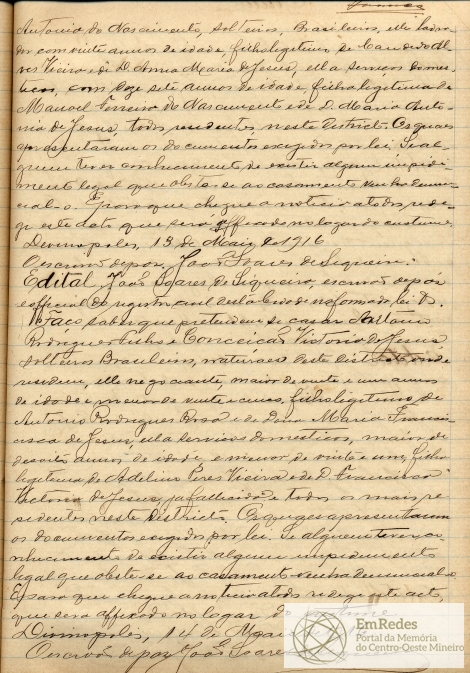 Antonio do Nascimento, solteiros, Brasileiros, elle lavra-
dor com vinte annos de idade, filho legitimo de Candido Al-
ves Vieira e de D. Anna Maria de Jesus, ella serviços domes-
ticos, com deze sete annos de idade, filha legitima de
Manoel Ferreira do Nascimento e de D. Maria Anto-
nia de Jesus, todos residentes neste Districto. Os quaes
apresentaram os documentos exegidos por lei. Se al-
guem tever conhecimento de existir algum impide-
mento legal que obste-se ao casamento venha denun-
cial-o. E para que chegue a noticia a todos rede-
ge este acto que sera affixado no logar do custume
Divinopoles, 13 de Maio de 1916
O escrivão de paz, João Soares de Siqueira.
Edital João Soares de Siqueira, escrivão de paz
e official do registro civil desta cidade na forma da lei &.
Faço saber que pretendem se casar Antonio
Rodrigues Filho e Conceição Victoria de Jesus
solteiros Brasileiros, naturaes deste districto, onde
residem, elle negociante, maior de vinte e um annos
de idade e menor de vinte e cinco, filho legitimo de
Antonio Rodrigues Rosa e de Dona Maria Francis-
cisca de Jesus, ella serviços domesticos, maior de
desoito annos de idade e menor de vinte e um, filha
legitima de Adelino Pires Vieira e de D. Francisca
Victoria de Jesus, ja fallecida e todos os mais re-
sidentes neste Districto. Os quaes apresentaram
os documentos exegidos por lei. Se alguem tever co-
nhecimento de existir algum impedimento
legal que obste-se ao casamento venha denuncial-o
E para que chegue a noticia a todos redege este acto,
que sera affixado no logar do custume
Divinopoles, 14 de Maio
O escrivão de paz João Soares
EmRedes
Portal da Memória
do Centro-Oeste Mineiro